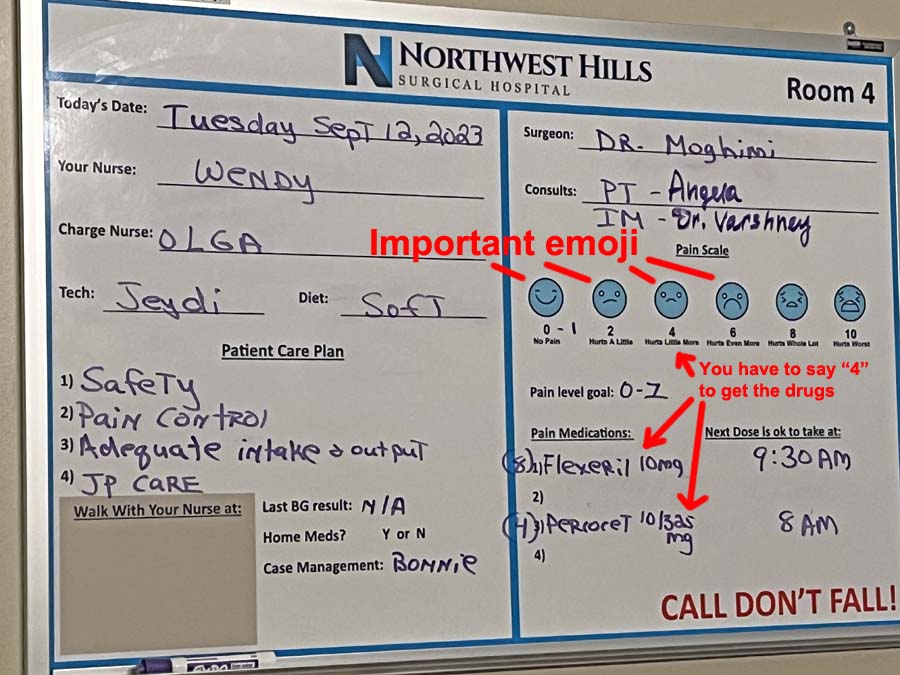 NORTHWEST HILLS
SURGICAL HOSPITAL
Room 4
Today's Date: Tuesday SepT 12, 2023
Your Nurse: WENDY
Charge Nurse: OLGA
Tech: Jeydi
Diet: SofT
Patient Care Plan
1) SafeTy
2) PaiN CoNTROl
3) Adequate intake & output
4) JP CARE
Walk With Your Nurse at:
Last BG result: N/A
Home Meds? Y or N
Case Management: BONNie
Surgeon: DR. Moghimi
Consults: PT - Angela
IM - Dr. Varshney
Important emoji
Pain Scale
0 - 1 2 4 6 8 10
No Pain Hurts A Little Hurts Little More Hurts Even More Hurts Whole Lot Hurts Worst
You have to say “4”
to get the drugs
Pain level goal: 0-1
Pain Medications: Next Dose is ok to take at:
(8) 1) Flexeril 10mg 9:30 AM
2)
(4) 3) PeRcoceT 10/325 mg 8 AM
4)
CALL DON'T FALL!
EXPO